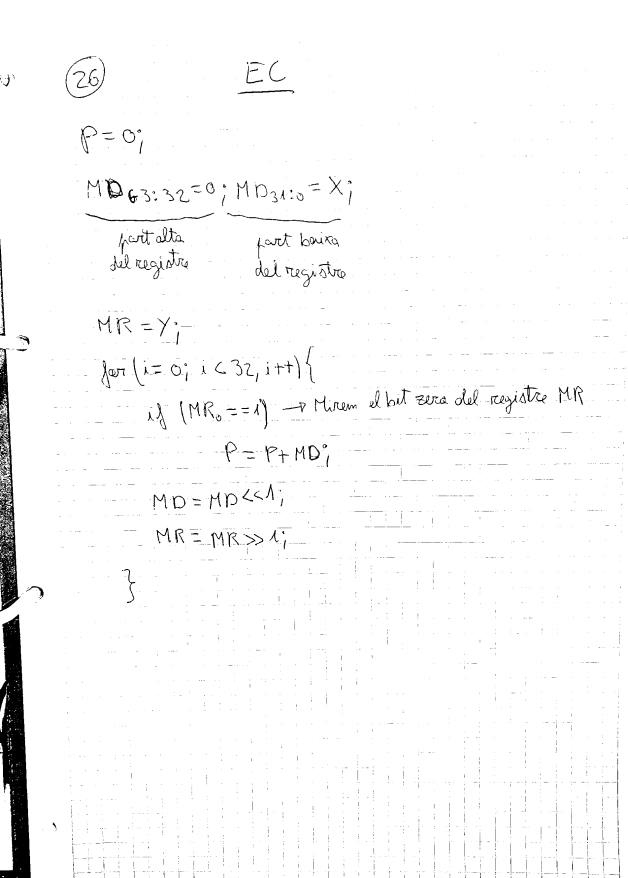 26 EC
P = 0;
MD63:32 = 0; MD31:0 = X;
part alta part baixa
del registre del registre
MR = Y;
for (i = 0; i < 32, i++) {
if (MR0 == 1) → Mirem el bit zero del registre MR
P = P + MD;
MD = MD << 1;
MR = MR >> 1;
}